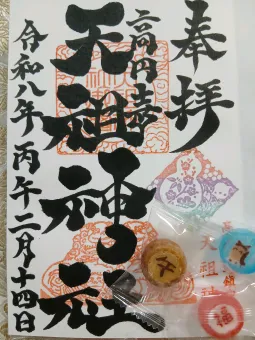 奉拝
高円寺
天祖神社
令和八年丙午二月十四日
天祖神
午
福